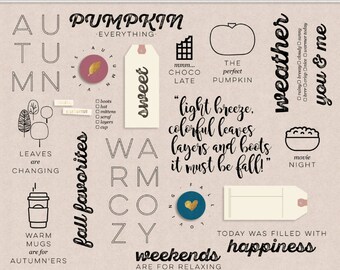 AUTUMN
PUMPKIN
-EVERYTHING-
sweet
CHOCO
LATE
THE
perfect
PUMPKIN
weather
you & me
boots
hat
mittens
scarf
layers
cup
LEAVES
are
CHANGING
fall favorites
WARM
COZY
"light breeze,
colorful leaves
layers and boots
it must be fall!"
movie
NIGHT
WARM
MUGS
are for
AUTUMN'ERS
TODAY WAS FILLED WITH
happiness
weekends
ARE FOR RELAXING